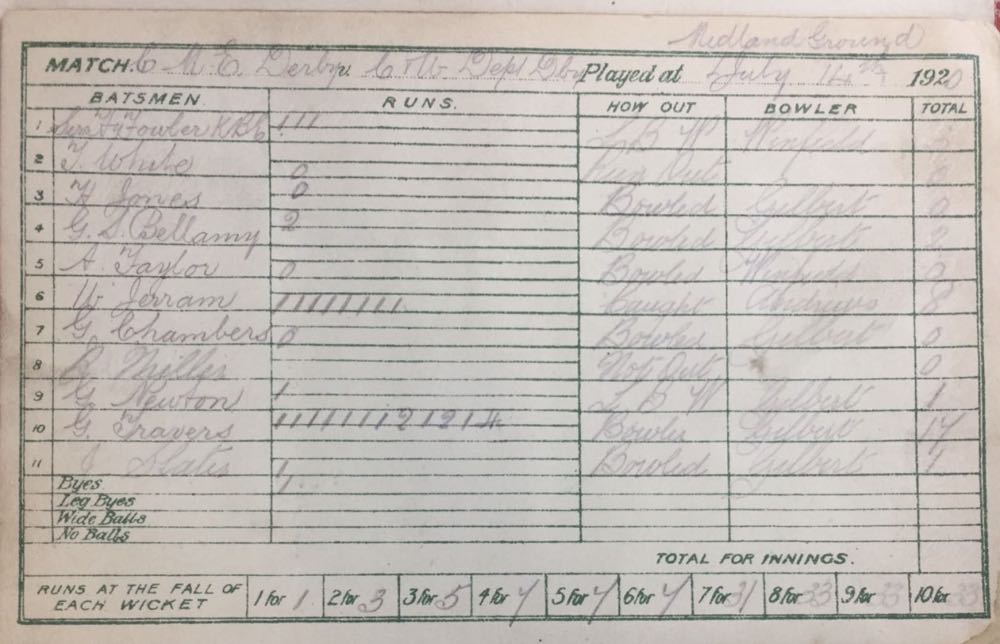 Midland Ground
MATCH. C M. E. Derby v. C & W Dept Dby Played at July 14th 1920
BATSMEN RUNS. HOW OUT BOWLER TOTAL
1 Fowler KBE 111 L B W Winfield 3
2 T. White 0 Run Out 0
3 H Jones 0 Bowled Gilbert 0
4 G. S. Bellamy 2 Bowled Gilbert 2
5 A. Taylor 0 Bowled Winfield 0
6 W. Jerram 11111111 Caught Andrews 8
7 G. Chambers 0 Bowled Gilbert 0
8 Miller Not Out 0
9 G. Newton 1 L B W Gilbert 1
10 G. Travers 111111121214 Bowled Gilbert 17
11 J Slater 1 Bowled Gilbert 1
Byes
Leg Byes
Wide Balls
No Balls
TOTAL FOR INNINGS.
RUNS AT THE FALL OF EACH WICKET 1 for 1 2 for 3 3 for 5 4 for 7 5 for 7 6 for 7 7 for 31 8 for 33 9 for 33 10 for 33